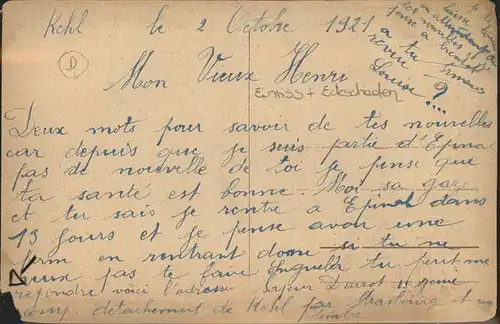 Kehl le 2 Octobre 1921
D
Mon Vieux Henri
Einriss + Eckschaden
Deux mots pour savoir de tes nouvelles
car depuis que je suis partie d'Epinal
pas de nouvelle de toi je pense que
ta santé est bonne. Moi sa gaz
et tu sais je rentre a Epinal dans
13 jours et je pense avoir une
perm en rentrant donc si tu ne
veux pas te faire tu peut me
repondre voici l'adresse Sapeur génie
detachement de Kehl par Strasbourg
laisse
en attendant
de tes nouvelles je
pense a bientot
a tu
revue
Louise ?...